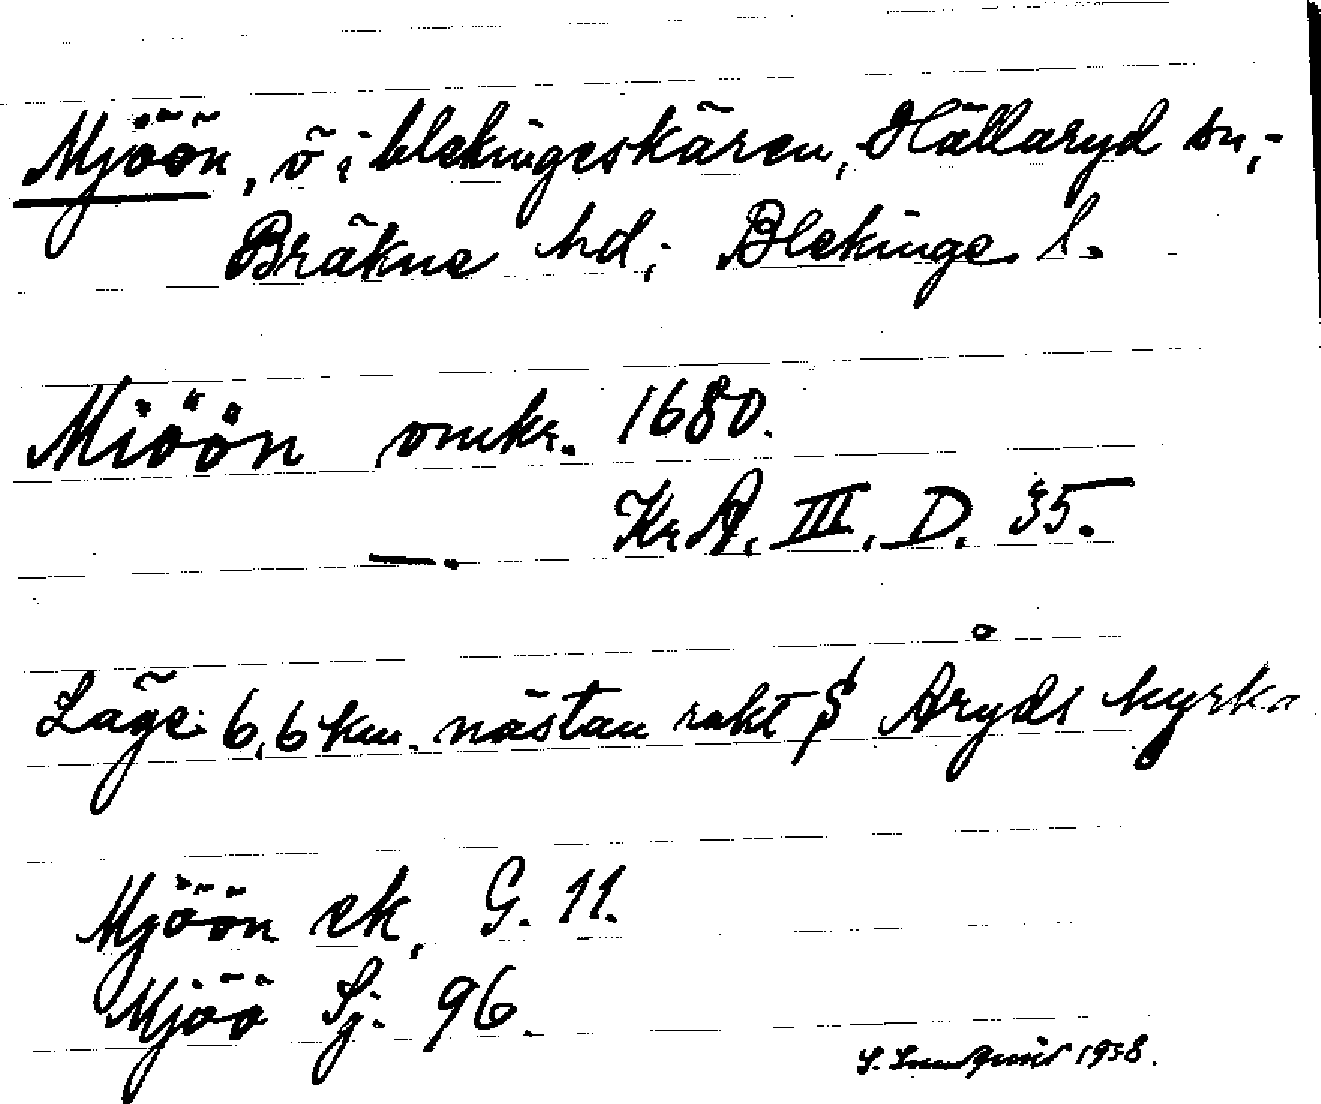 Mjöön, ö i blekingeskären, Hällaryd sn,-
Bräkne hd, Blekinge l.
Miöön omkr. 1680.
Kr.A. III. D. 35.
—.
Läge: 6,6 km. nästan rakt S Åryds kyrka
Mjöön ek, G. 11.
Mjöö Sj. 96.
S. 1938.